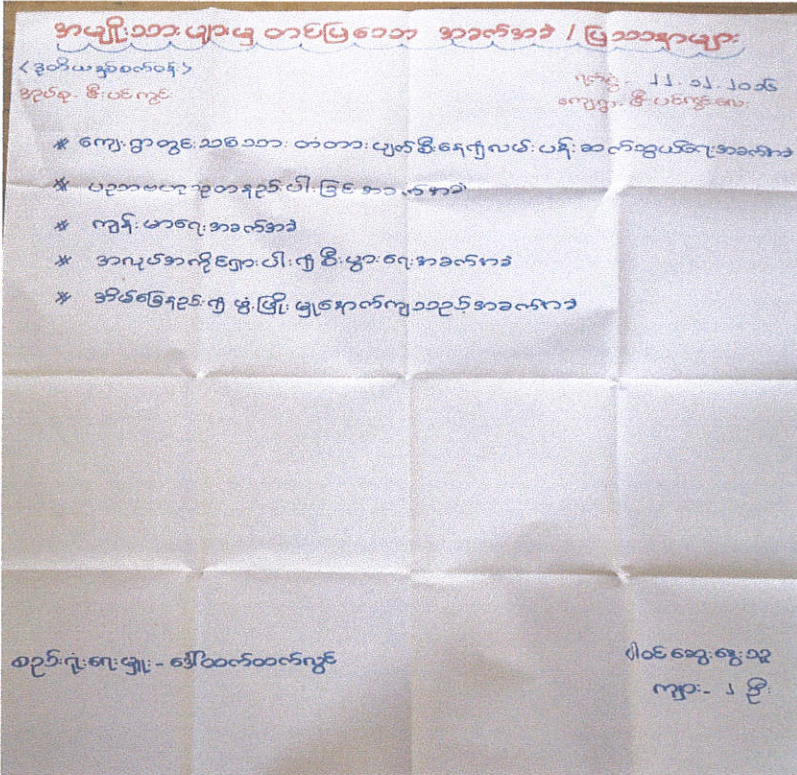 အမျိုးသားများမှ တင်ပြသော အခက်အခဲ / ပြဿနာများ
<ဒုတိယနှစ်စက်ဝန်း>
ရက်စွဲ - ၂၂.၁၂.၂၀၁၆
အုပ်စု - ဇီးပင်ကွင်း
ကျေးရွာ - ဇီးပင်ကွင်းလေး
* ကျေးရွာတွင်းသစ်သား တံတားပျက်စီးနေ၍လမ်းပန်းဆက်သွယ်ရေးအခက်အခဲ
* ပညာဗဟုသုတနည်းပါးခြင်းအခက်အခဲ
* ကျန်းမာရေးအခက်အခဲ
* အလုပ်အကိုင်ရှားပါး၍ စီးပွားရေးအခက်အခဲ
* အိမ်ခြေနည်း၍ ဖွံ့ဖြိုးမှုနောက်ကျသည့်အခက်အခဲ
စည်းရုံးရေးမှူး - ဒေါ်ထက်ထက်လွင်
ပါဝင်ဆွေးနွေးသူ
ကျား - ၂ ဦး